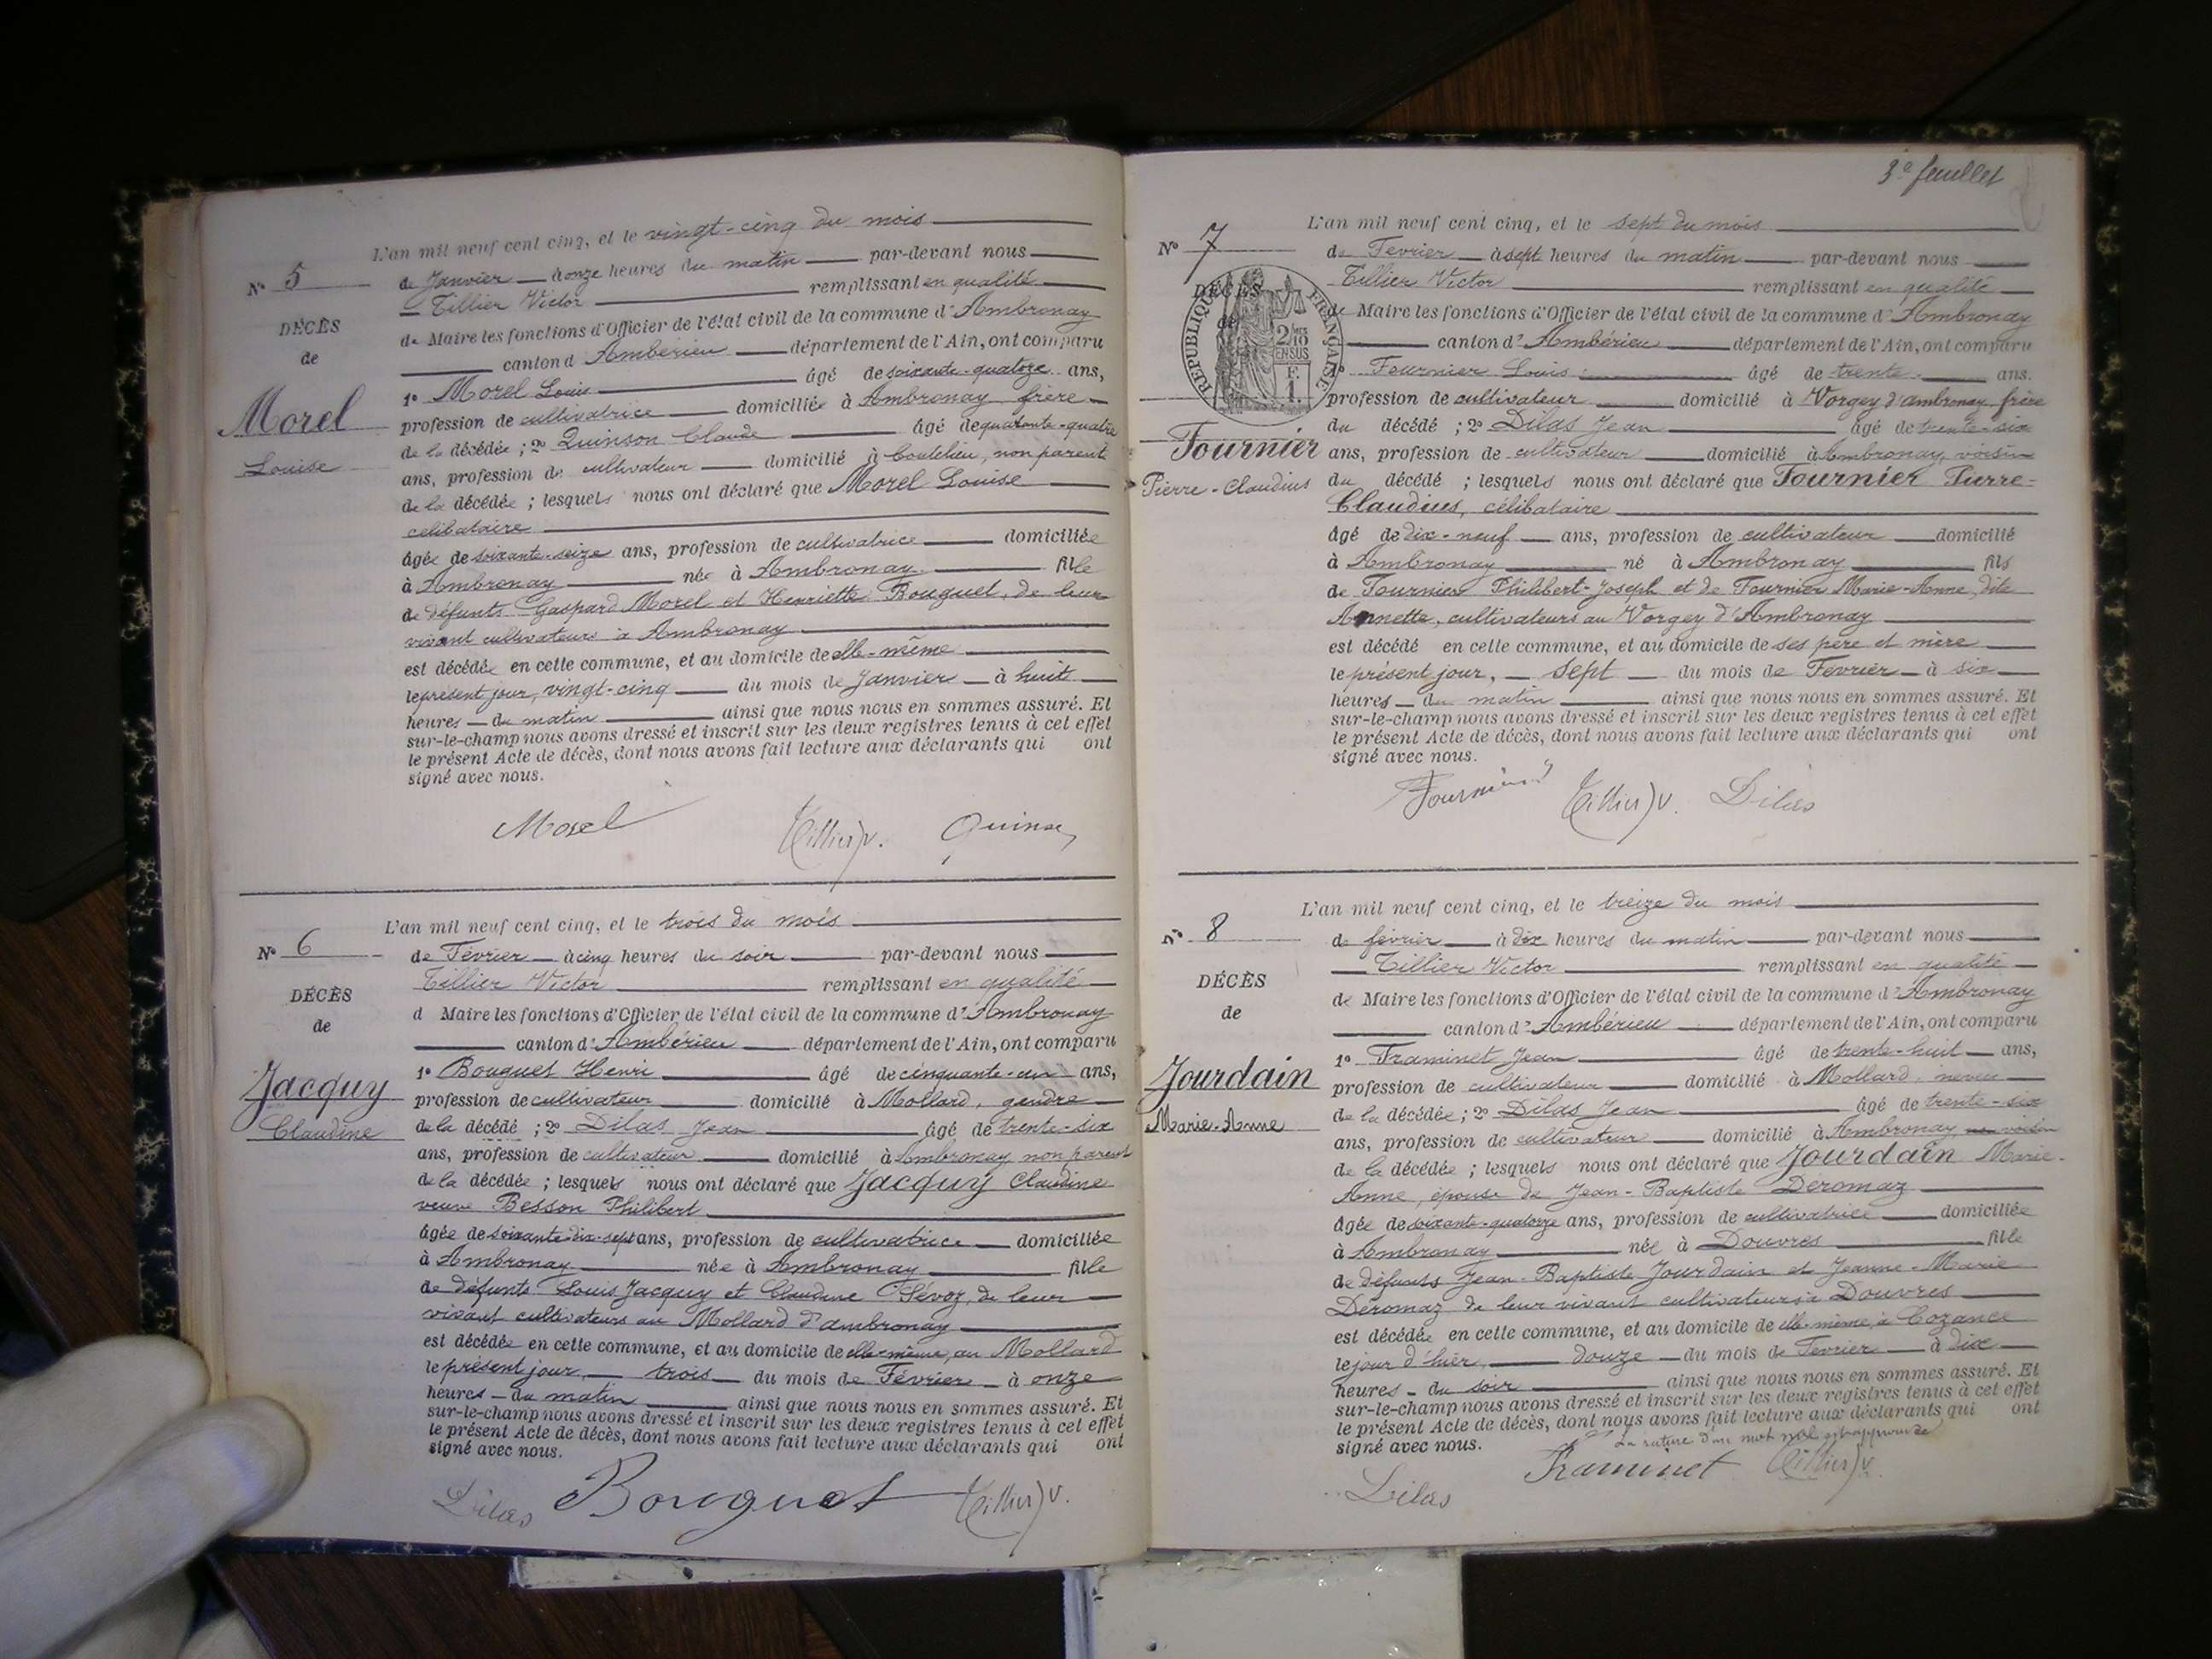 L'an mil neuf cent cinq, et le vingt-cinq du mois
N° 5
de Janvier à onze heures du matin par-devant nous
Tillier Victor remplissant en qualité
DÉCÈS
de Maire les fonctions d'Officier de l'état civil de la commune d'Ambronay
de
canton d'Ambérieu département de l'Ain, ont comparu
1° Morel Louis âgé de soixante-quatorze ans,
Morel
profession de cultivatrice domiciliée à Ambronay frère
de la décédée ; 2° Quinson Claude âgé de quarante-quatre
Louise
ans, profession de cultivateur domicilié à Coutelieu, non parent
de la décédée ; lesquels nous ont déclaré que Morel Louise
célibataire
âgée de soixante-seize ans, profession de cultivatrice domiciliée
à Ambronay née à Ambronay fille
de défunts Gaspard Morel et Henriette Bouguet, de leur
vivant cultivateurs à Ambronay
est décédée en cette commune, et au domicile de elle-même
le présent jour, vingt-cinq du mois de Janvier à huit
heures du matin ainsi que nous nous en sommes assuré. Et
sur-le-champ nous avons dressé et inscrit sur les deux registres tenus à cet effet
le présent Acte de décès, dont nous avons fait lecture aux déclarants qui ont
signé avec nous.
Morel Tillier V. Quinson
L'an mil neuf cent cinq, et le trois du mois
N° 6
de Février à cinq heures du soir par-devant nous
Tillier Victor remplissant en qualité
DÉCÈS
d Maire les fonctions d'Officier de l'état civil de la commune d'Ambronay
de
canton d'Ambérieu département de l'Ain, ont comparu
1° Bouguet Henri âgé de cinquante-un ans,
Jacquy
profession de cultivateur domicilié à Mollard, gendre
Claudine
de la décédé ; 2° Dilas Jean âgé de trente-six
ans, profession de cultivateur domicilié à Ambronay non parent
de la décédée ; lesquels nous ont déclaré que Jacquy Claudine
veuve Besson Philibert
âgée de soixante-dix-sept ans, profession de cultivatrice domiciliée
à Ambronay née à Ambronay fille
de défunts Louis Jacquy et Claudine Sévoz, de leur
vivant cultivateurs au Mollard d'ambronay
est décédée en cette commune, et au domicile de elle-même, au Mollard
le présent jour, trois du mois de Février à onze
heures du matin ainsi que nous nous en sommes assuré. Et
sur-le-champ nous avons dressé et inscrit sur les deux registres tenus à cet effet
le présent Acte de décès, dont nous avons fait lecture aux déclarants qui ont
signé avec nous.
Dilas Bouguet Tillier V.
3e feuillet
L'an mil neuf cent cinq, et le sept du mois
N° 7
de Février à sept heures du matin par-devant nous
Tillier Victor remplissant en qualité
DÉCÈS
de
RÉPUBLIQUE FRANÇAISE
2/10 EN SUS
F. 1.
de Maire les fonctions d'Officier de l'état civil de la commune d'Ambronay
canton d'Ambérieu département de l'Ain, ont comparu
Fournier Louis âgé de trente ans.
profession de cultivateur domicilié à Vorgey d'ambronay frère
du décédé ; 2° Dilas Jean âgé de trente-six
Fournier
ans, profession de cultivateur domicilié à Ambronay, voisin
Pierre-Claudius
du décédé ; lesquels nous ont déclaré que Fournier Pierre-
Claudius, célibataire
âgé de dix-neuf ans, profession de cultivateur domicilié
à Ambronay né à Ambronay fils
de Fournier Philibert-Joseph et de Fournier Marie-Anne, dite
Annette, cultivateurs au Vorgey d'Ambronay
est décédé en cette commune, et au domicile de ses père et mère
le présent jour, sept du mois de Février à six
heures du matin ainsi que nous nous en sommes assuré. Et
sur-le-champ nous avons dressé et inscrit sur les deux registres tenus à cet effet
le présent Acte de décès, dont nous avons fait lecture aux déclarants qui ont
signé avec nous.
Fournier Tillier V. Dilas
L'an mil neuf cent cinq, et le treize du mois
N° 8
de février à dix heures du matin par-devant nous
Tillier Victor remplissant en qualité
DÉCÈS
de Maire les fonctions d'Officier de l'état civil de la commune d'Ambronay
de
canton d'Ambérieu département de l'Ain, ont comparu
1° Framinet Jean âgé de trente-huit ans,
Jourdain
profession de cultivateur domicilié à Mollard neveu
Marie-Anne
de la décédée ; 2° Dilas Jean âgé de trente-six
ans, profession de cultivateur domicilié à Ambronay voisin
de la décédée ; lesquels nous ont déclaré que Jourdain Marie-
Anne, épouse de Jean-Baptiste Deromaz
âgée de soixante-quatorze ans, profession de cultivatrice domiciliée
à Ambronay née à Douvres fille
de défunts Jean-Baptiste Jourdain et Jeanne-Marie
Deromaz de leur vivant cultivateurs à Douvres
est décédée en cette commune, et au domicile de elle-même, à Cozance
le jour d'hier, douze du mois de Février à dix
heures du soir ainsi que nous nous en sommes assuré. Et
sur-le-champ nous avons dressé et inscrit sur les deux registres tenus à cet effet
le présent Acte de décès, dont nous avons fait lecture aux déclarants qui ont
signé avec nous. La rature d'un mot nul est approuvée
Dilas Framinet Tillier V.